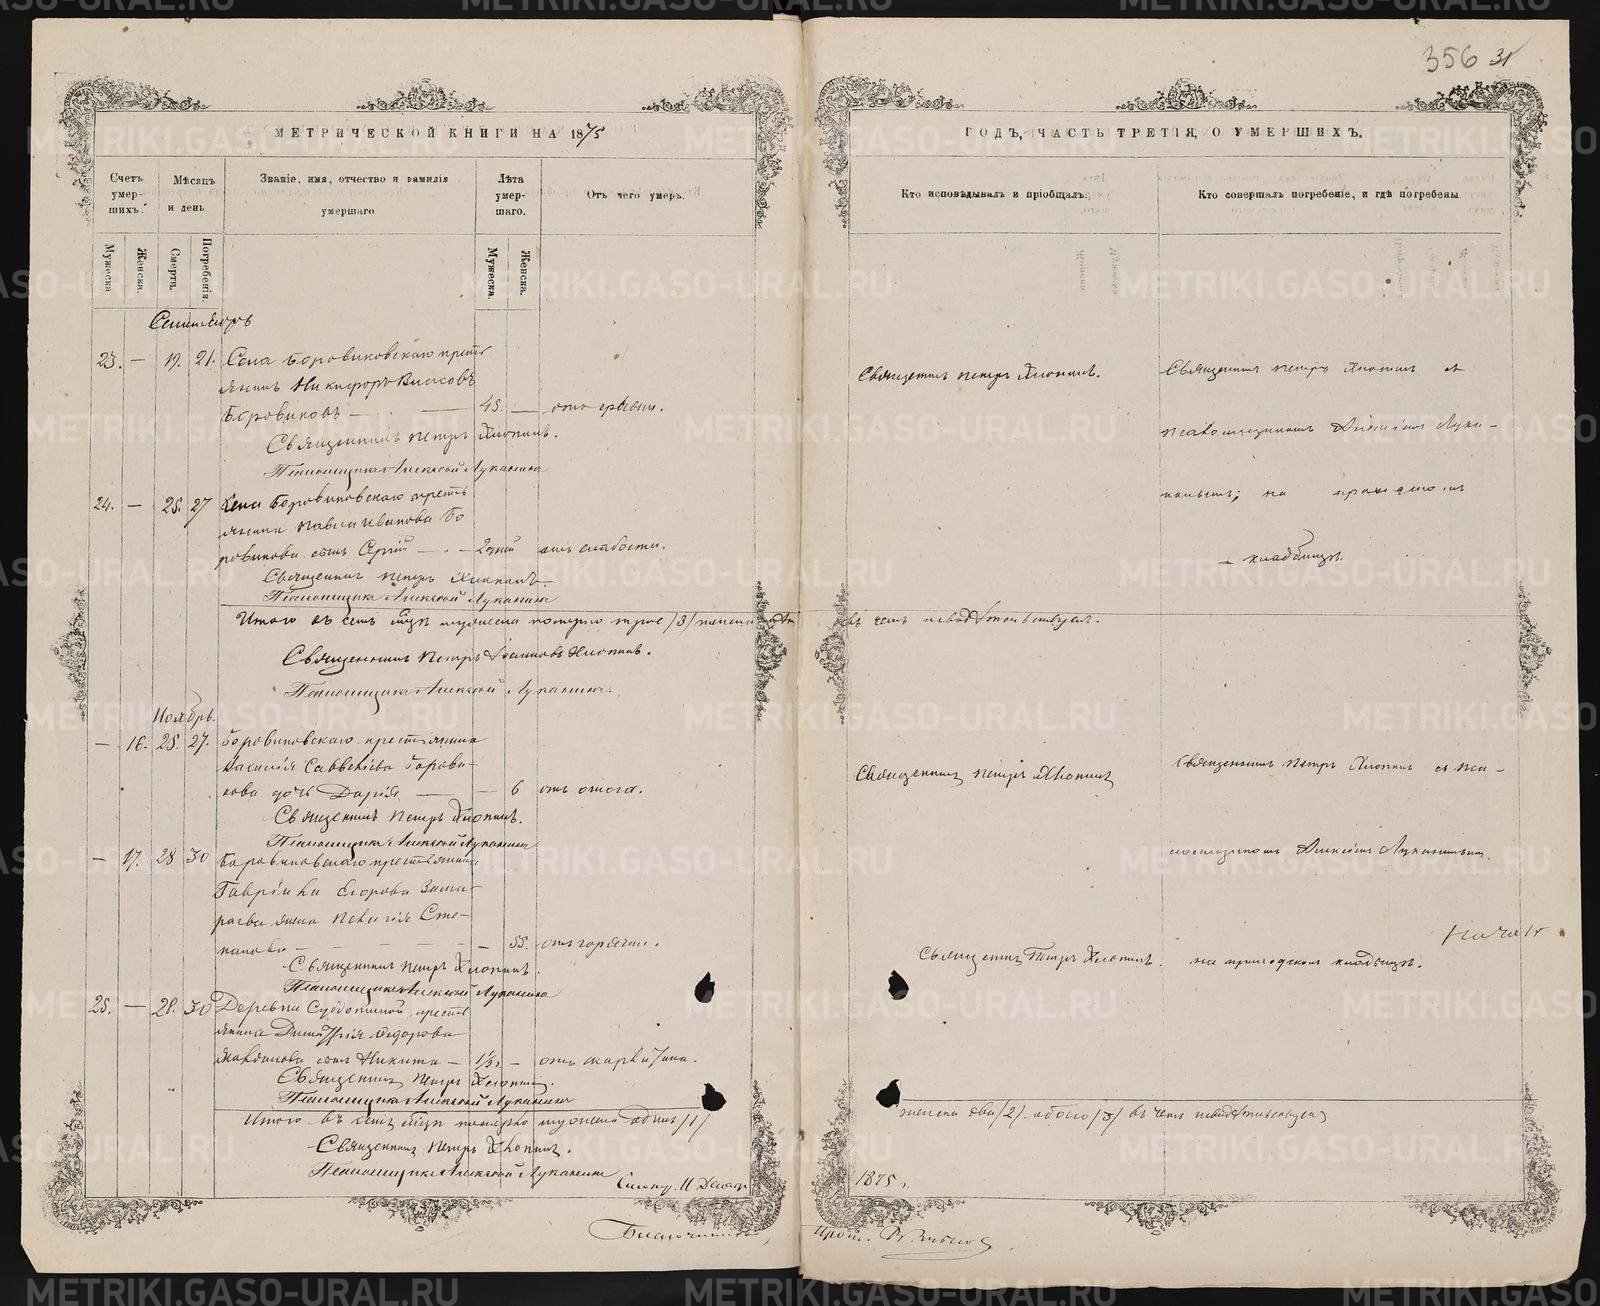 356 31
МЕТРИЧЕСКОЙ КНИГИ НА 1875
Счетъ умер- шихъ.
Мѣсяцъ и день
Званіе, имя, отчество и фамилія умершаго
Лѣта умер- шаго.
Отъ чего умеръ.
Мужеска.
Женска.
Смерти.
Погребенія.
Мужеска.
Женска.
Сентябрь
23. — 19. 21. Села Боровиковскаго кресть
янинъ Никифоръ Власовъ
Боровиковъ — 45. — отъ грыжи.
Священникъ Петръ Хлопинъ.
Псаломщикъ Алексѣй Луканинъ
24. — 25. 27 Села Боровиковскаго кресть
янина Павла Иванова Бо
ровикова сынъ Сергій — 2 дней отъ слабости.
Священникъ Петръ Хлопинъ
Псаломщикъ Алексѣй Луканинъ
Итого въ семъ мѣсяцѣ мужеска померло трое /3/ женска
Священникъ Петръ Іоанновъ Хлопинъ.
Псаломщикъ Алексѣй Луканинъ.
Ноябрь.
— 16. 25. 27. Боровиковскаго крестьянина
Василія Савватіева Борови-
кова дочь Дарія — — 6 отъ
Священникъ Петръ Хлопинъ.
Псаломщикъ Алексѣй Луканинъ
— 17. 28 30 Боровиковскаго крестьянина
Гавріила Егорова
жена Пелагія Сте-
панова — — 55. отъ горячки.
Священникъ Петръ Хлопинъ.
Псаломщикъ Алексѣй Луканинъ
25. — 28. 30 Деревни Субботиной кресть
янина Димитрія Федорова
сынъ Никита — 1½ — отъ скарлатины.
Священникъ Петръ Хлопинъ.
Псаломщикъ Алексѣй Луканинъ
Итого въ семъ мѣсяцѣ померло мужеска одинъ /1/
Священникъ Петръ Хлопинъ.
Псаломщикъ Алексѣй Луканинъ
11 Декабр
Благочинный,
ГОДЪ, ЧАСТЬ ТРЕТІЯ, О УМЕРШИХЪ.
Кто исповѣдывалъ и пріобщалъ.
Кто совершалъ погребеніе, и гдѣ погребены
Священникъ Петръ Хлопинъ.
Священникъ Петръ Хлопинъ съ
псаломщикомъ Алексѣемъ Лука-
нинымъ; на приходскомъ
кладбищѣ.
въ чемъ и свидѣтельствуемъ.
Священникъ Петръ Хлопинъ
Священникъ Петръ Хлопинъ съ пса-
ломщикомъ Алексѣемъ Луканинымъ
Священникъ Петръ Хлопинъ. на приходскомъ кладбищѣ.
женска два /2/ обоего /3/ въ чемъ и свидѣтельствуемъ
1875 г.
Прот.
METRIKI.GASO-URAL.RU